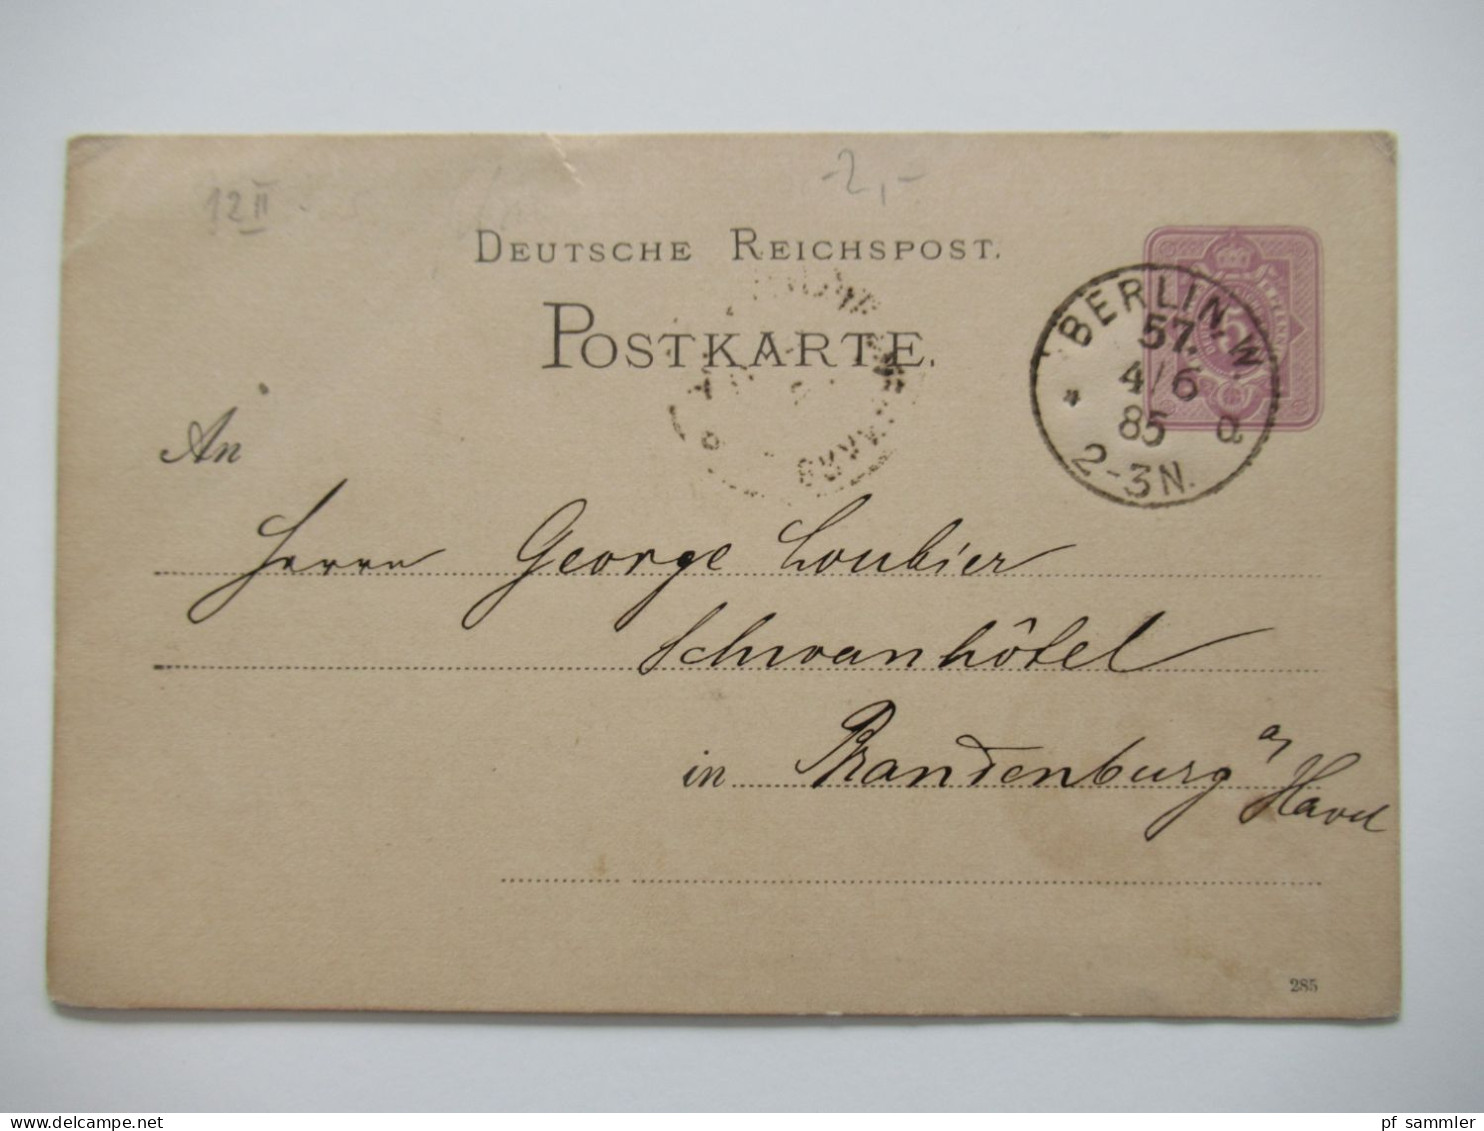 12 II
-2,-
DEUTSCHE REICHSPOST.
POSTKARTE.
BERLIN W
57.
4/6
85 a
2-3N.
An
Herrn George Loubier
Schwanhôtel
in Brandenburg a/
Havel
285
pf sammler